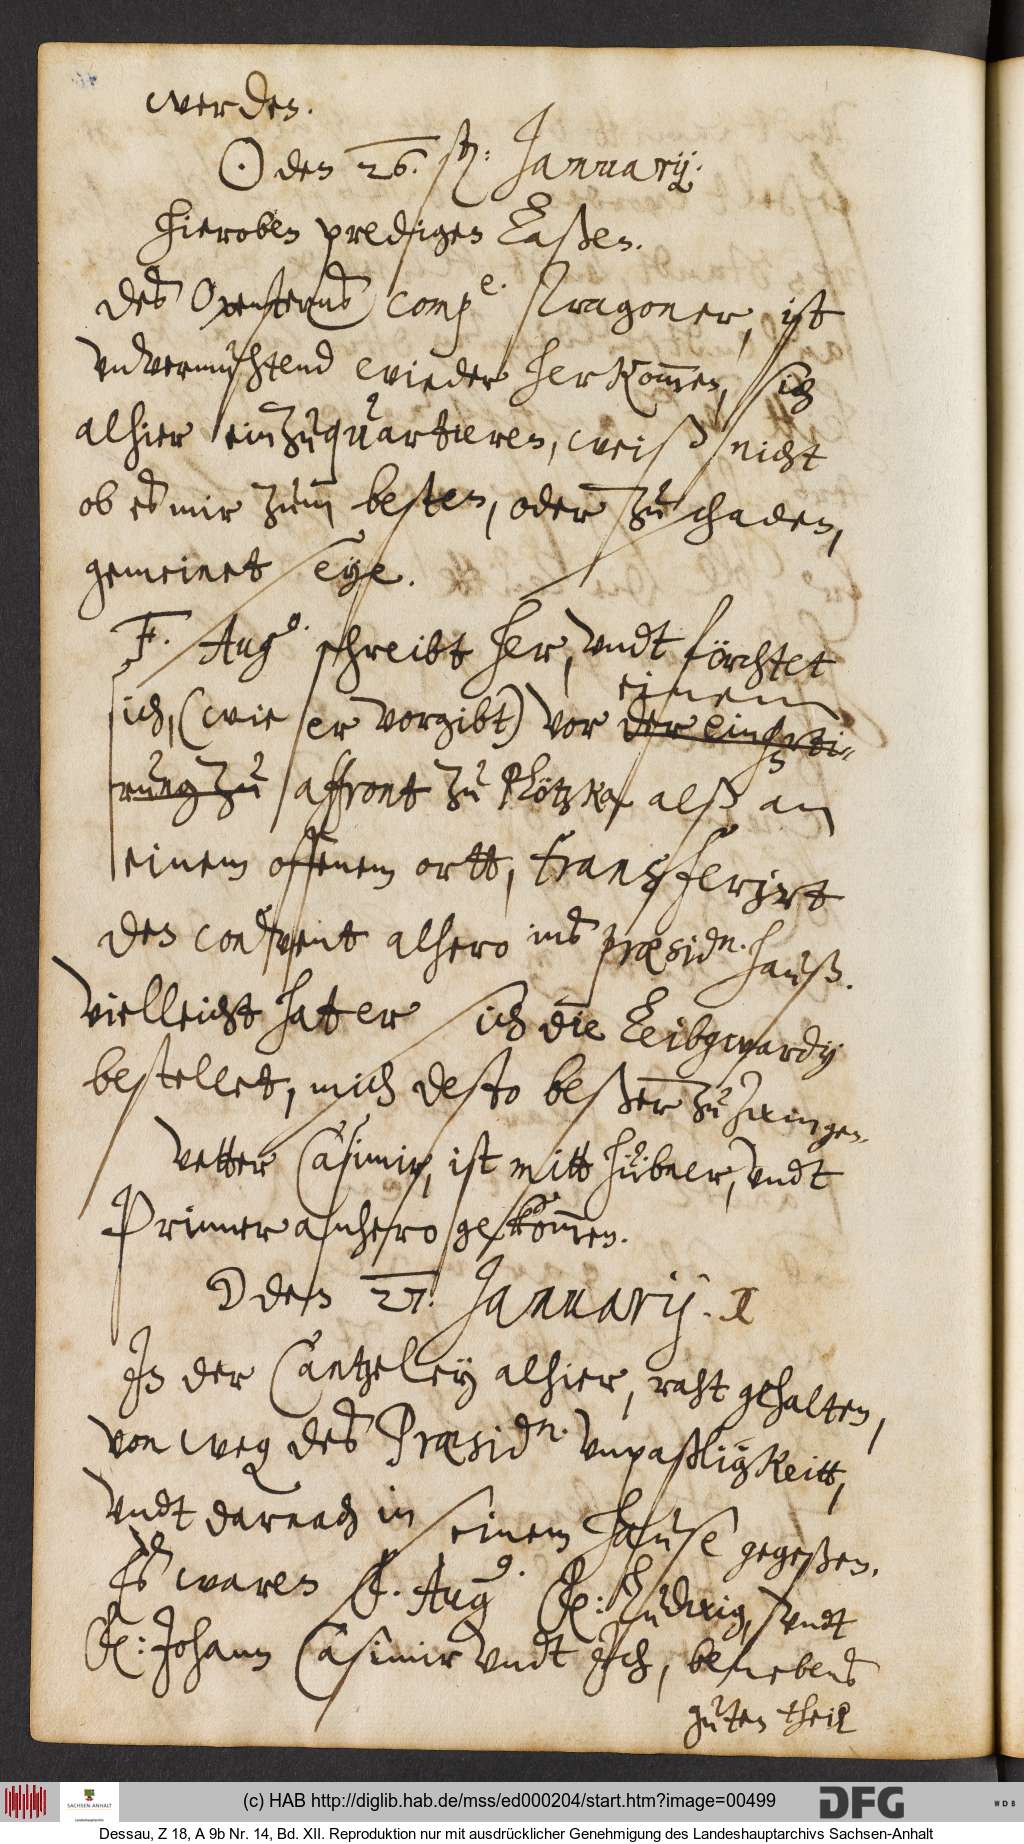 werden.
☉ den 26. sten: Januarij.
Hieroben predigen Laßen.
Des Oxensterns Compe. Dragoner, ist
vnvermuhtend wieder her kommen, sich
alhier einzuquartieren, weiß nicht
ob es mir zum besten, oder zu schaden,
gemeinet seye.
F. Augo. schreibt her, vndt förchtet
einem
sich, (wie er vorgibt) vor der einfüh-
rung zu affront zu Plötzka alß an
einem offenem ortt, transferirt
den convent alhero ins Præsidn. hauß.
Vielleicht hat er sich die Leibgwardy
bestellet, mich desto beßer zu zwingen.
Vetter Casimir, ist mitt Hübner, vndt
Prinner anhero gekommen.
☽ den 27. Januarij. I
In der Cantzeley alhier, raht gehalten,
von weg des Præsidn. vnpaßligkeitt,
vndt darnach in seinem hause gegeßen.
Es waren F. Augo. F: Ludwig, vndt
F: Johann Casimir vndt Ich, benebens
guten theil
(c) HAB http://diglib.hab.de/mss/ed000204/start.htm?image=00499
SACHSEN-ANHALT
Landeshauptarchiv
DFG
WDB
Dessau, Z 18, A 9b Nr. 14, Bd. XII. Reproduktion nur mit ausdrücklicher Genehmigung des Landeshauptarchivs Sachsen-Anhalt